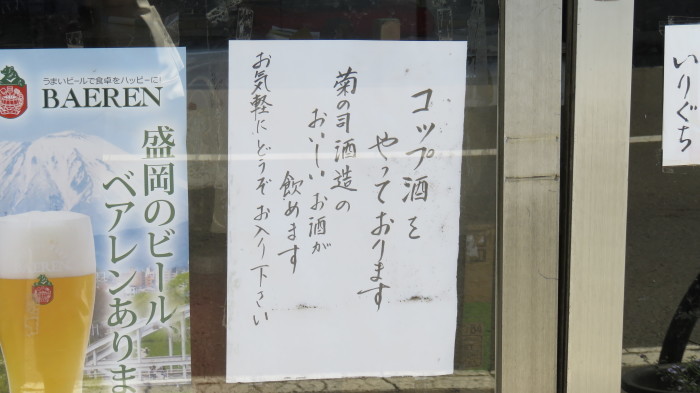 いりぐち
コップ酒を
やっております
菊の司酒造の
おいしいお酒が
飲めます
お気軽にどうぞお入り下さい
うまいビールで食卓をハッピーに!
BAEREN
盛岡のビール
ベアレンありま